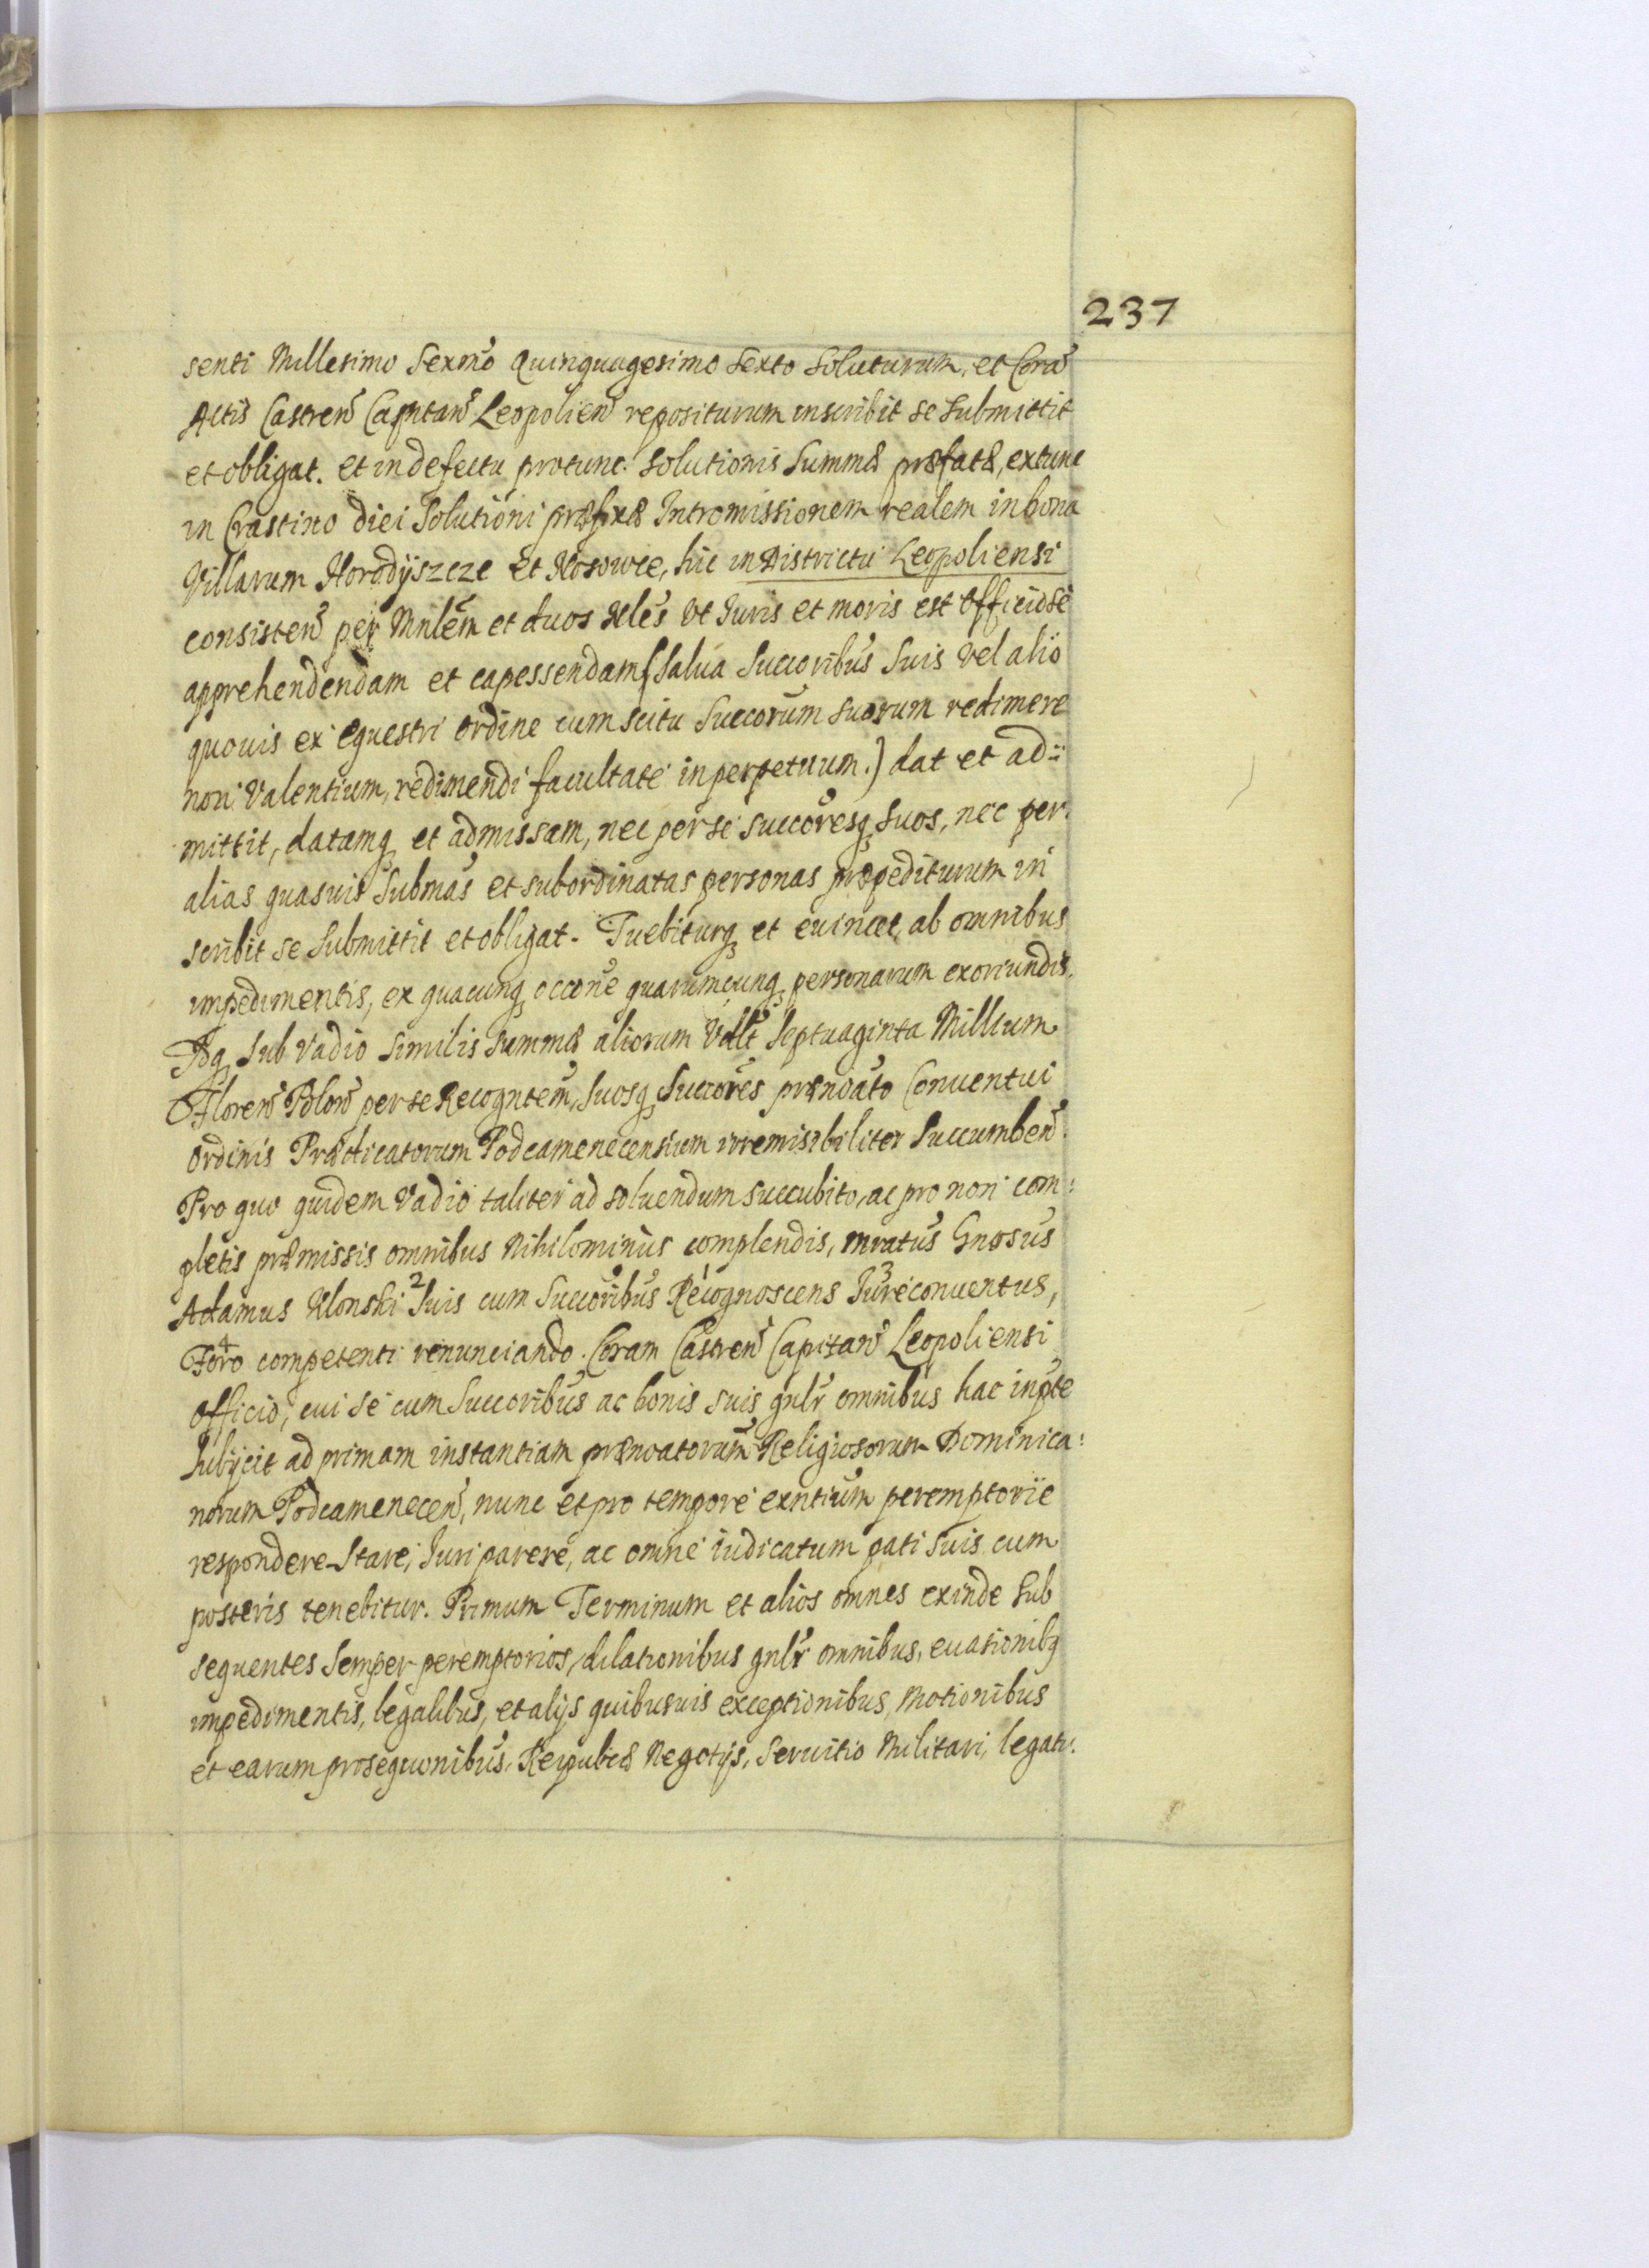 237
senti Millesimo Sexmo Quinquagesimo Sexto Soluturum, et Cora
Actis Castren Capntan Leopolien repositurum inscribit se submittit
et obligat. et in defectu protunc solutionis Summæ præfatæ, extunc
in Crastino diei Solutioni præfixæ Intromissionem realem in bona
Villarum Horodÿszcze et Kosowce, hic in Districtu Leopoliensi
consisten per Mnlem et duos Nles Vt Iuris et moris est Officiose
apprehendendam et capessendam (Salua Succoribus Suis Vel alio
quouis ex equestri ordine cum scitu Succorum suorum redimere
non Valentium, redimendi facultate in perpetuum.) dat et ad=
mittit, datamq et admissam, nec per se succoresq suos, nec per
alias quasuis Submas et subordinatas personas præpediturum in
scribit se Submittit et obligat. Tuebiturq et euincet, ab omnibus
impedimentis, ex quacunq occone quarumcunq personarum exoriundis.
Idq sub Vadio similis summæ aliorum Vdlt Septuaginta Millium
Floren Polon per se Recogntem, Suosq Succores prænoato Conuentui
Ordinis Prædicatorum Podcamenecensium irremisibiliter Succumben.
Pro quo quidem Vadio taliter ad soluendum succubito, ac pro non com=
pletis præmissis omnibus Nihilominus complendis, mratus Gnosus
Adamus Ulonski 2 Suis cum Succoribus 1 Recognoscens 3 Iure conuentus,
4 Foro competenti renunciando. Coram Castren Capitan Leopoliensi
Officio, cui se cum Succoribus ac bonis suis gnlr omnibus hac inpte
Subÿcit ad primam instantiam prænoatorum Religiosorum Dominica=
norum Podcamenecen, nunc et pro tempore exntium peremptorie
respondere Stare, Iuri parere, ac omne iudicatum pati suis cum
posteris tenebitur. Primum Terminum et alios omnes exinde sub
sequentes Semper peremptorios, dilationibus gnlr omnibus, euasionibq
impedimentis, legalibus, et alÿs quibusuis exceptionibus, Motionibus
et earum prosequonibus, Reipublicæ Negotÿs, Seruitio Militari, legatr.